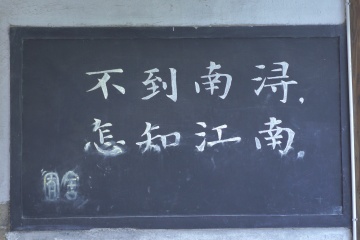 不到南浔,
怎知江南.